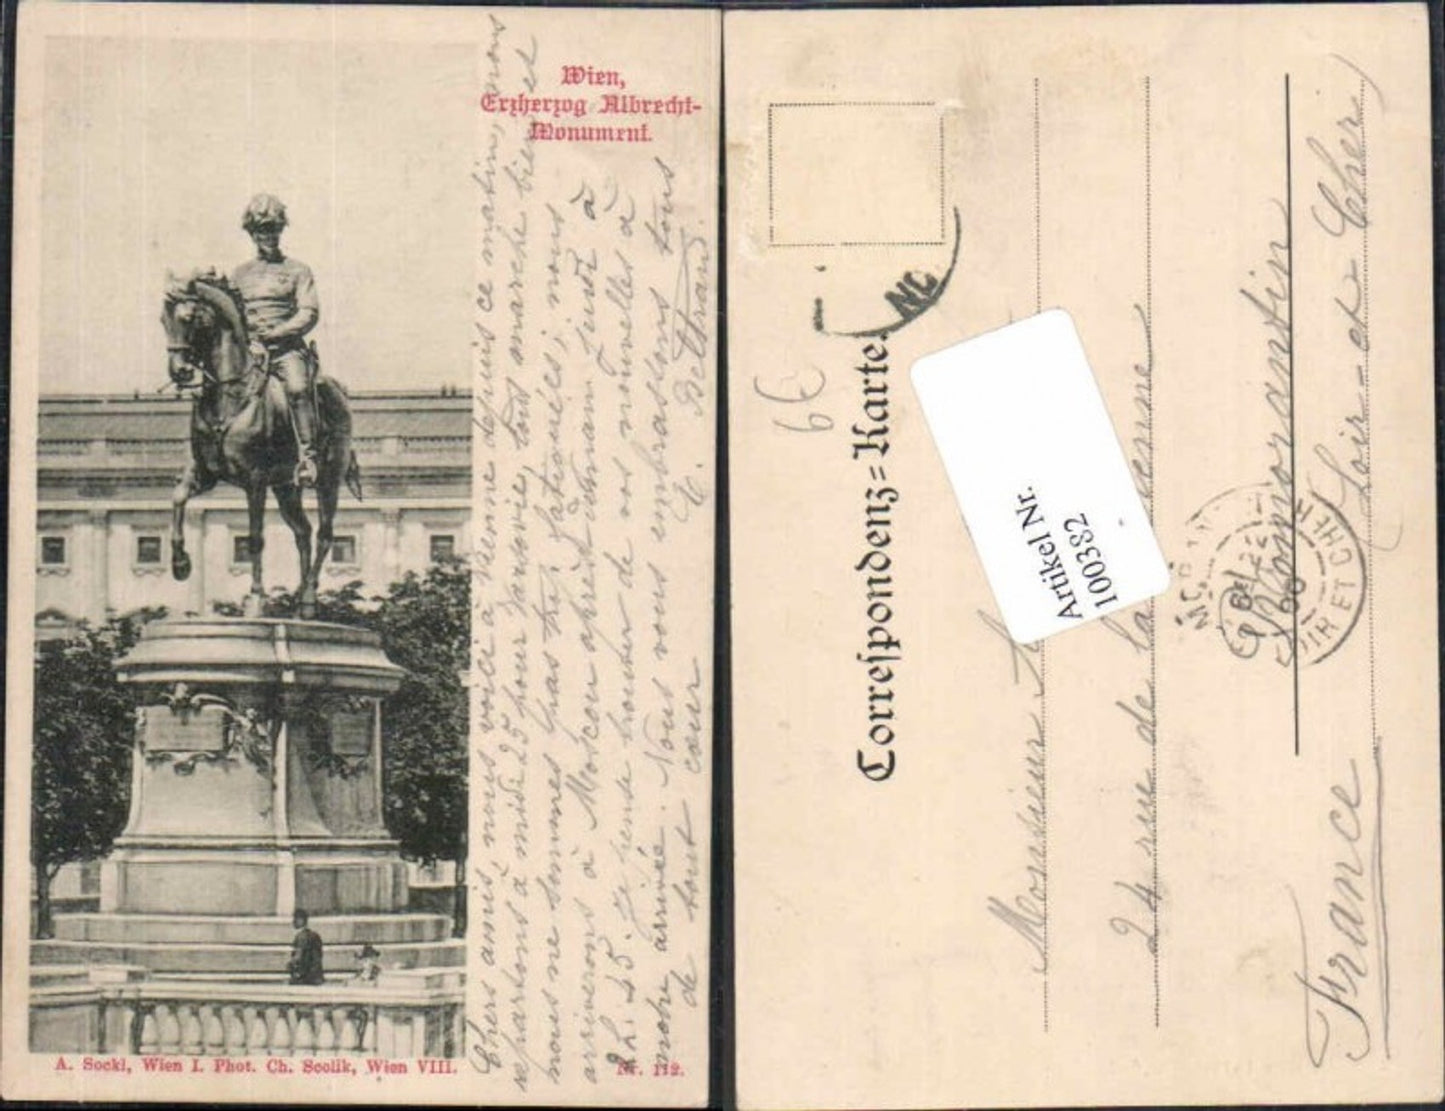 Wien,
Erzherzog Albrecht-
Monument.
Chers amis, nous voici à Vienne depuis ce matin, nous
repartons à midi 25 pour Varsovie, tout marche bien et
nous ne sommes pas trop fatiguées; nous
arriverons à Moscou après-demain jeudi à
2h.55. Je pense trouver de vos nouvelles à
notre arrivée. Nous vous embrassons tous
de tout cœur
E. Bertrand.
A. Sockl, Wien I. Phot. Ch. Scolik, Wien VIII.
Nr. 112.
Correspondenz-Karte.
6€
Artikel Nr.
100382
Monsieur
24 rue de la
Romorantin
Loir-et-Cher
France
LOIR ET CHER